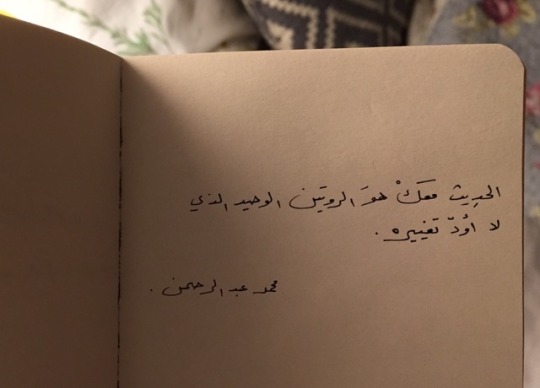 الحديث معكْ هوَ الروتين الوحيد الذي
لا أودّ تغييره .
محمد عبدالرحمن .